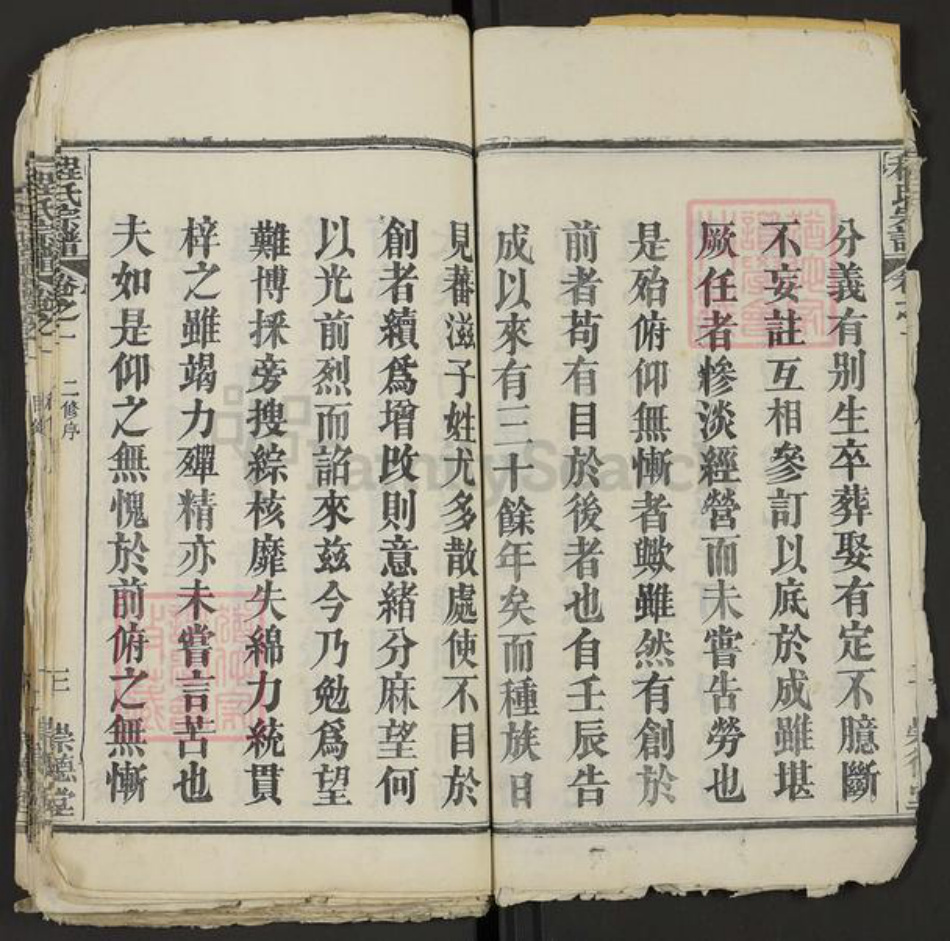 分義有別生卒葬娶有定不臆斷
不妄註互相參訂以底於成雖堪
厥任者慘淡經營而未嘗告勞也
是殆俯仰無慚者歟雖然有創於
前者苟有目於後者也自壬辰告
成以來有三十餘年矣而種族日
見蕃滋子姓尤多散處使不目於
創者續爲增改則意緒分麻望何
以光前烈而詒來兹今乃勉爲望
難博採旁搜綜核靡失綿力統貫
梓之雖竭力殫精亦未嘗言苦也
夫如是仰之無愧於前俯之無慚
程氏宗譜
卷之一
二修序
三
崇德堂
FamilySearch